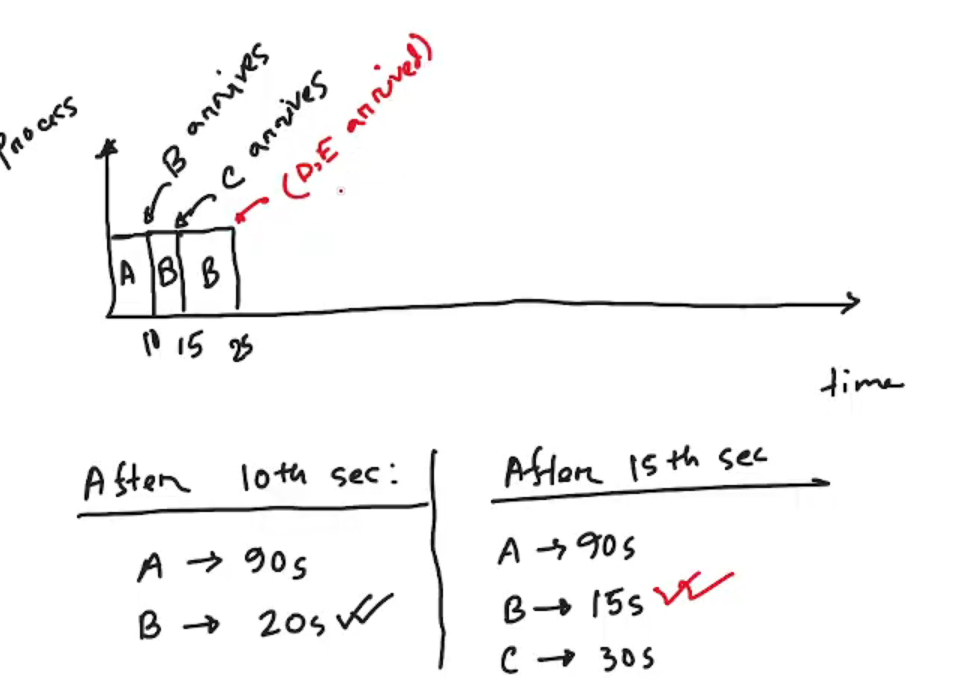 Process
B arrives
C arrives
(D,E arrived)
A B B
10 15 25
time
After 10th sec:
A → 90s
B → 20s
After 15th sec
A → 90s
B → 15s
C → 30s